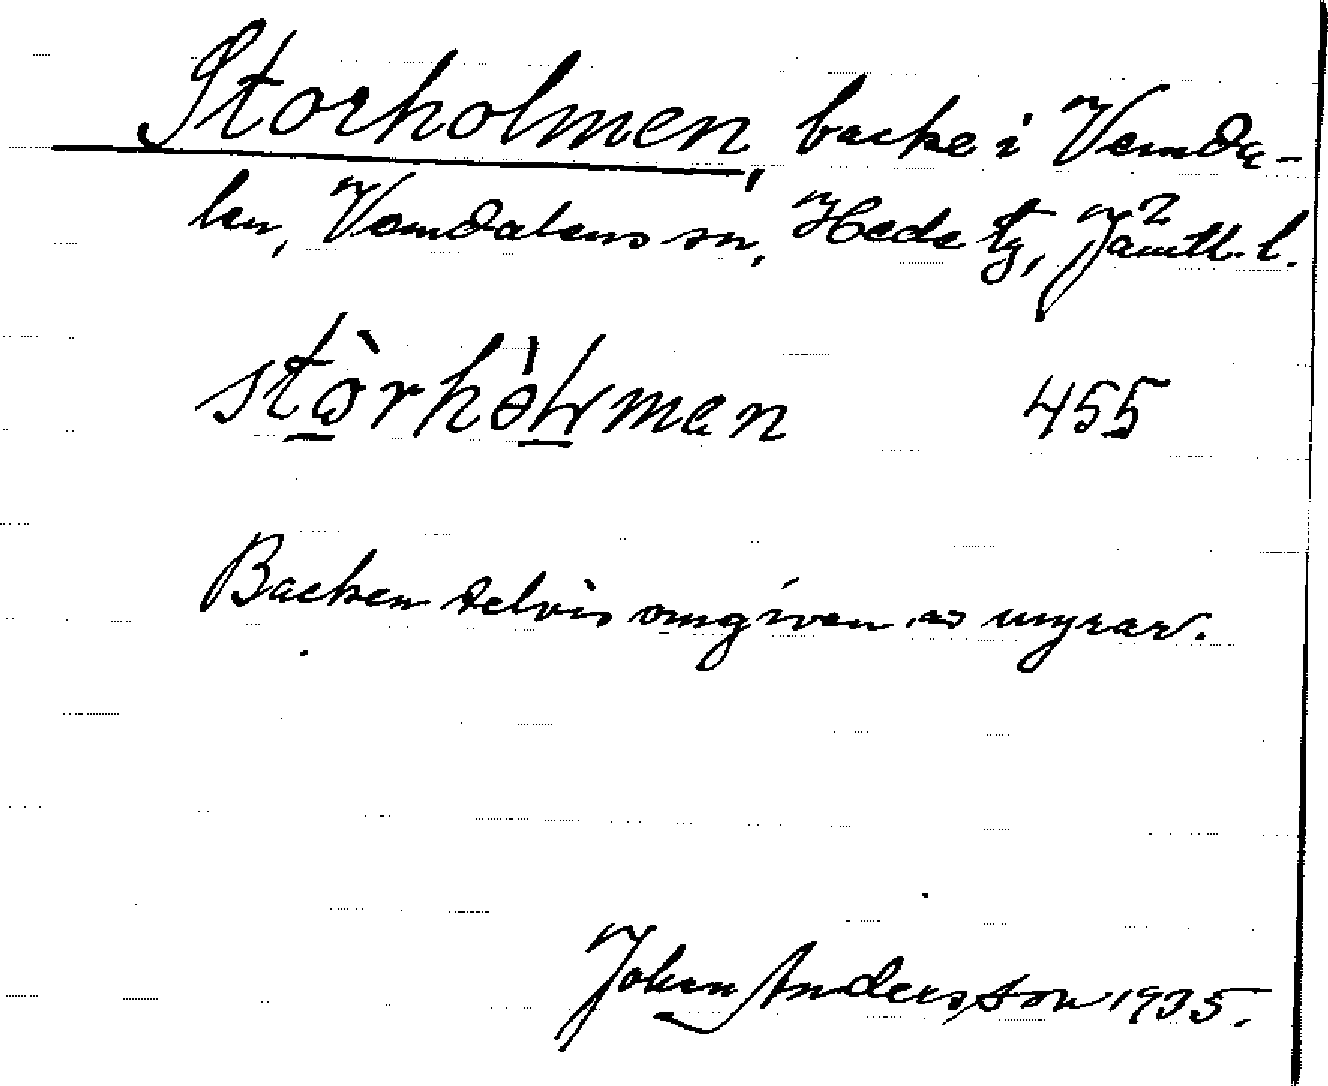 Storholmen, backe i Vemda-
len, Vemdalens sn, Hede tg, Jämtl. l.
stòrhòłmen 455
Backen delvis omgiven av myrar.
John Andersson 1935.